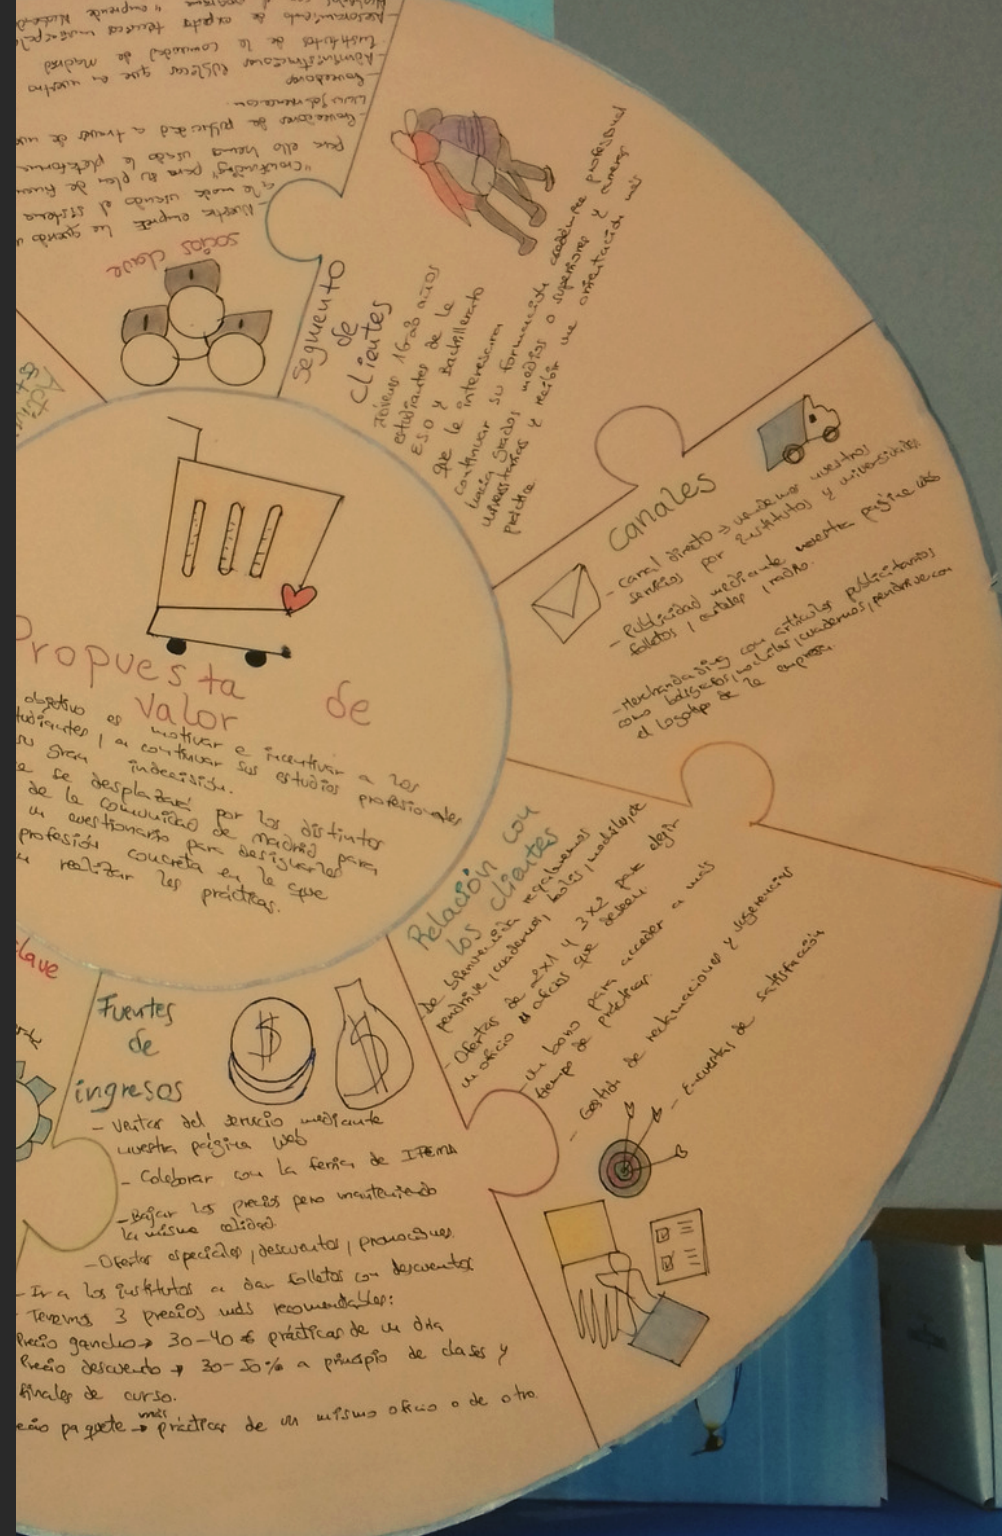 socios clave
- Nuestra empresa
"Crowdfunding" para su plan de
para ello hemos usado la plataforma
- Proveedores de publicidad a través de
- Proveedores
- Administraciones públicas que en nuestro
institutos de la comunidad de Madrid
- Asesoramiento de expertos técnicos
Segmento
de
Clientes
estudiantes de la
E.S.O y Bachillerato
que le interesaria
continuar su formación académica profesional
hacia grados medios o superiores y
universitarias y recibir una orientación más
práctica.
Canales
- Canal directo → vendemos nuestros
servicios por institutos y universidades
- Publicidad mediante nuestra página web
folletos, carteles, radio.
- Merchandasing con artículos publicitarios
como bolígrafos, mochilas, cuadernos, pendrive con
el logotipo de la empresa.
Propuesta de
Valor
objetivo es motivar e incentivar a los
a continuar sus estudios profesionales
su gran indecisión.
se desplazará por los distintos
de la comunidad de Madrid para
un cuestionario para designarles
profesión concreta en la que
realizar las prácticas.
Relación con
los clientes
De bienvenida regalaremos
pendrive, cuadernos, bolis, mochila, etc
- Ofertas de 2x1 y 3x2 para elegir
un oficio u oficios que deseen
- Un bono para acceder a más
tiempo de prácticas.
- Gestión de reclamaciones y sugerencias
- Encuestas de satisfacción
clave
Fuentes
de
ingresos
- Ventas del servicio mediante
nuestra página web
- Colaborar con la feria de IFEMA
- Bajar los precios pero manteniendo
la misma calidad.
- Ofertas especiales, descuentos, promociones.
- Ir a los institutos a dar folletos con descuentos
- Tenemos 3 precios más recomendables:
Precio gancho → 30-40 € prácticas de un día
Precio descuento → 30-50% a principio de clases y
finales de curso.
paquete → más prácticas de un mismo oficio o de otro.